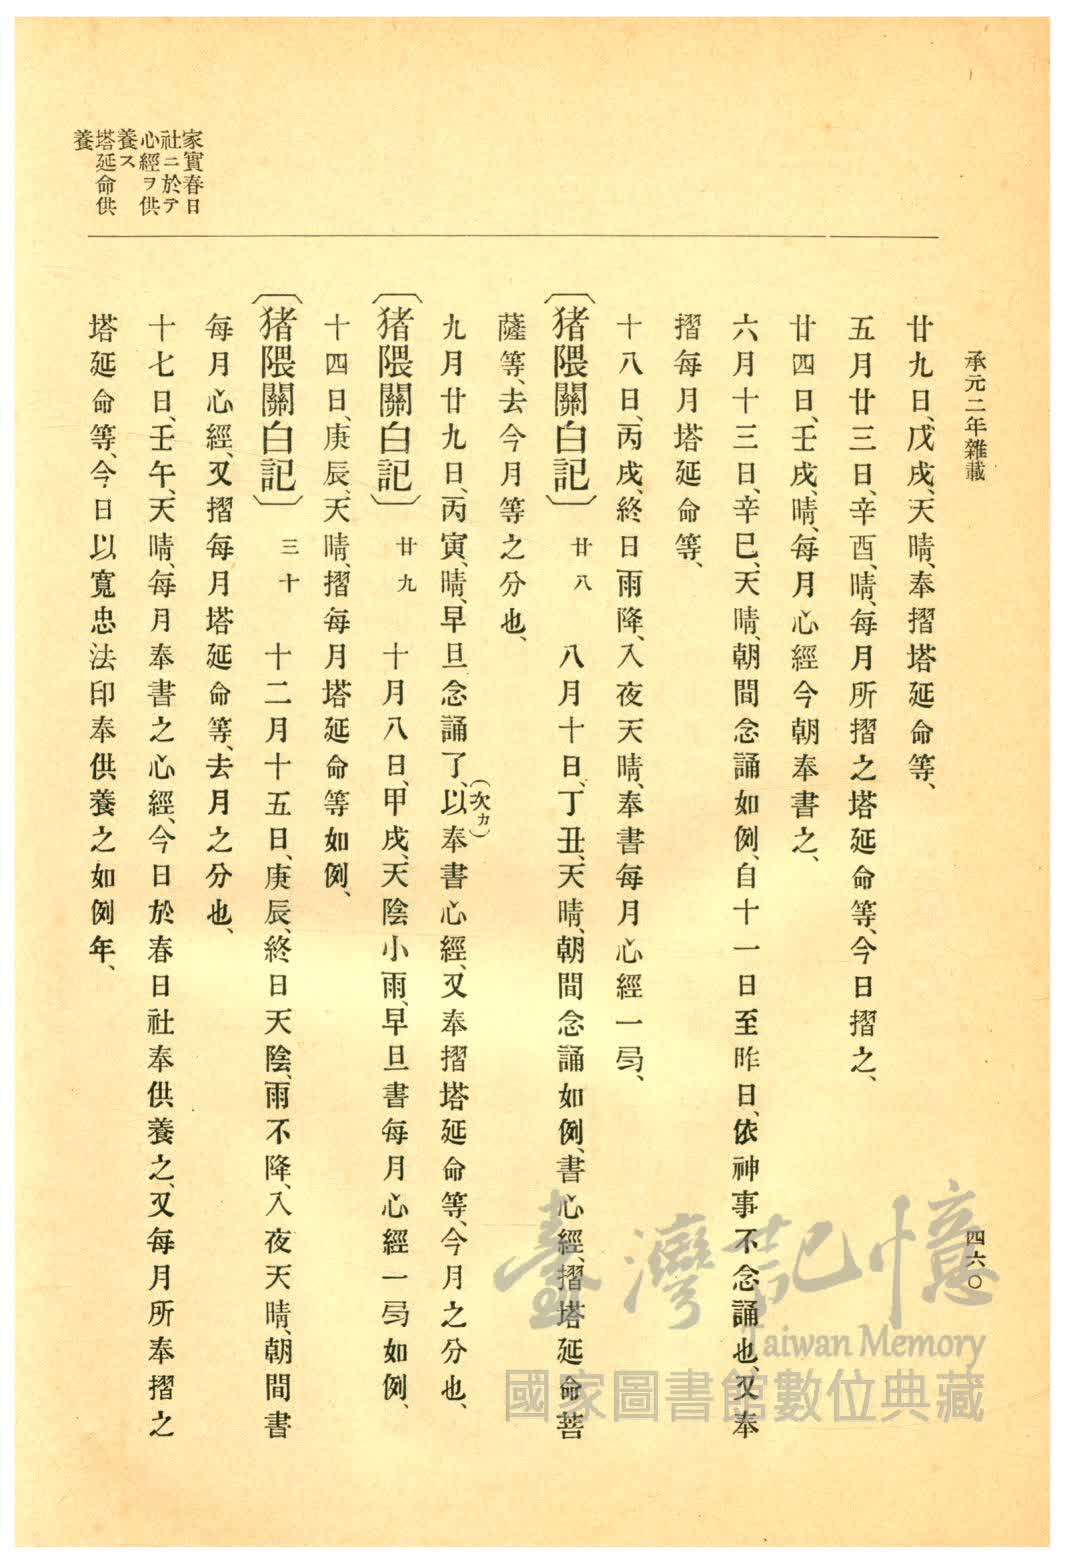 承元二年雜載
四六〇
廿九日、戊戌、天晴、奉摺塔延命等、
五月廿三日、辛酉、晴、每月所摺之塔延命等、今日摺之、
廿四日、壬戌、晴、每月心經今朝奉書之、
六月十三日、辛巳、天晴、朝間念誦如例、自十一日至昨日、依神事不念誦也、又奉
摺每月塔延命等、
十八日、丙戌、終日雨降、入夜天晴、奉書每月心經一㢧、
〔猪隈關白記〕 廿八 八月十日、丁丑、天晴、朝間念誦如例、書心經、摺塔延命菩
薩等、去今月等之分也、
九月廿九日、丙寅、晴、早旦念誦了、以(次カ)奉書心經、又奉摺塔延命等、今月之分也、
〔猪隈關白記〕 廿九 十月八日、甲戌、天陰小雨、早旦書每月心經一㢧如例、
十四日、庚辰、天晴、摺每月塔延命等如例、
〔猪隈關白記〕 三十 十二月十五日、庚辰、終日天陰、雨不降、入夜天晴、朝間書
每月心經、又摺每月塔延命等、去月之分也、
十七日、壬午、天晴、每月奉書之心經、今日於春日社奉供養之、又每月所奉摺之
塔延命等、今日以寬忠法印奉供養之如例年、
家實春日
社ニ於テ
心經ヲ供
養ス
塔延命供
養
臺灣記憶
Taiwan Memory
國家圖書館數位典藏